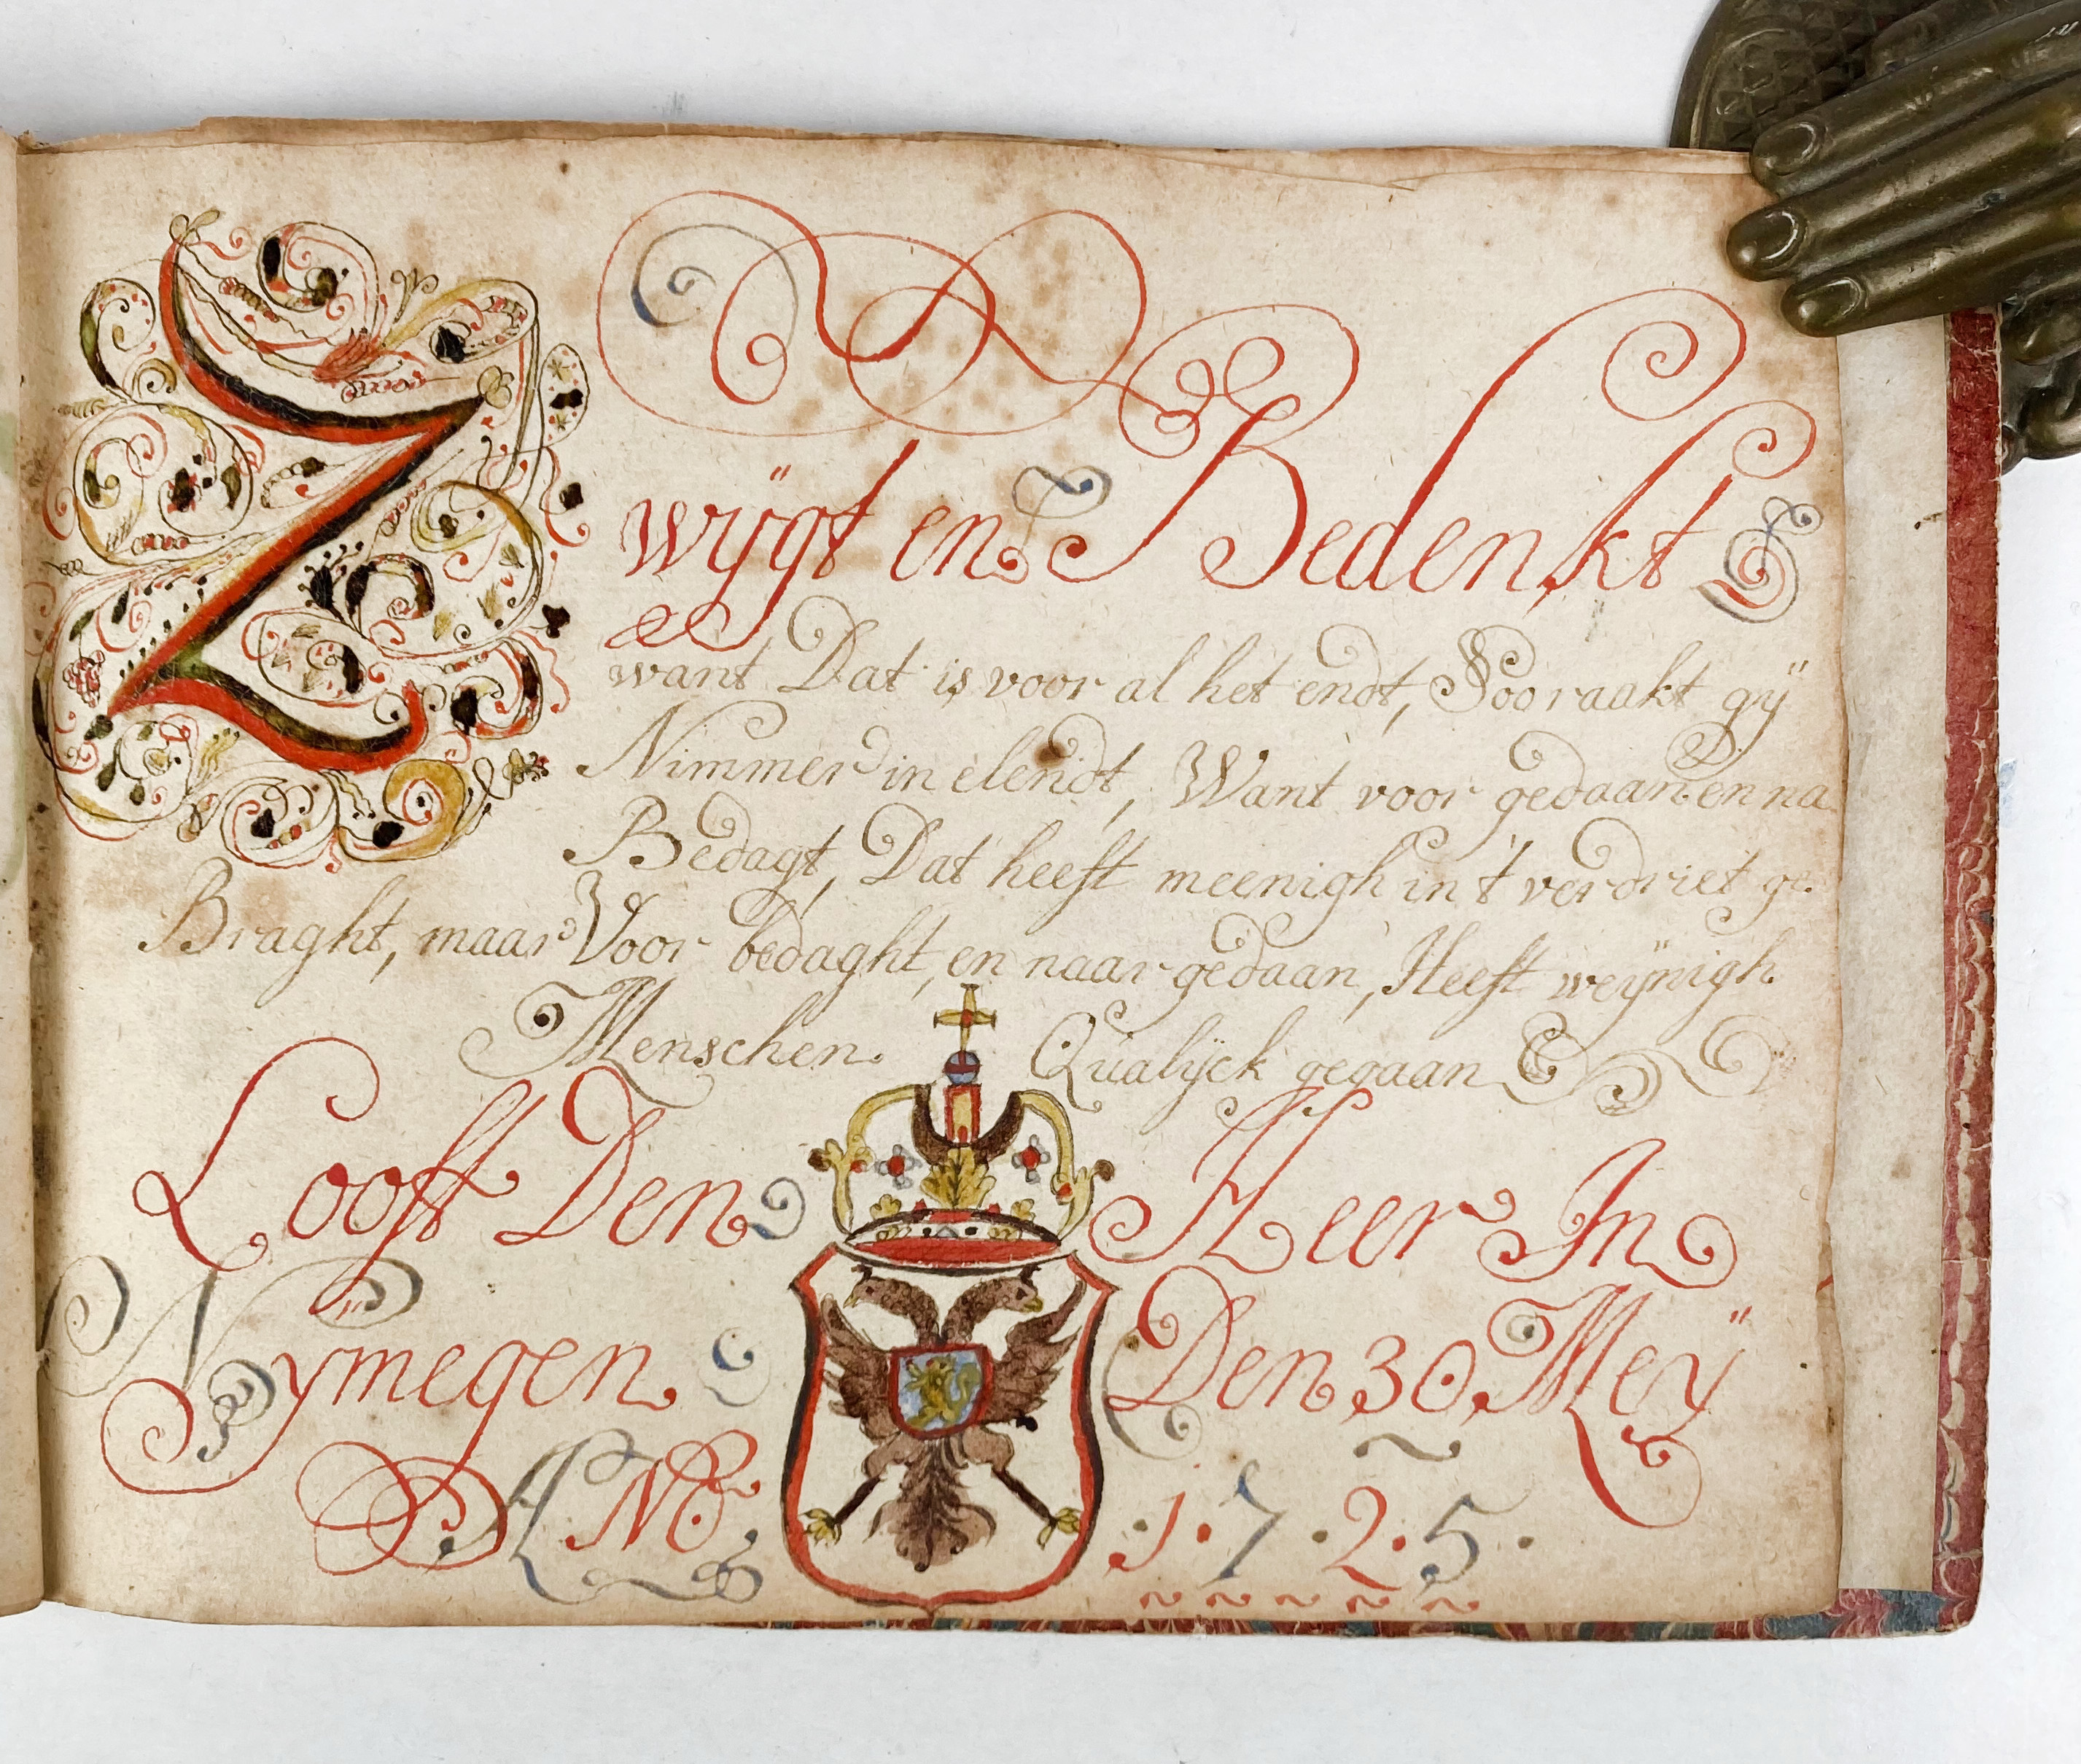 Zwÿgt en Bedenkt
want Dat is voor al het endt, Soo raakt gÿ
Nimmer in elendt, Want voor gedaan en na
Bedagt, Dat heeft meenigh in 't verdriet ge
Braght, maar Voor bedaght, en naar gedaan, Heeft weÿnigh
Menschen. Qualÿck gegaan
Looft Den Heer In
Nÿmegen Den 30 Meÿ
1·7·2·5·